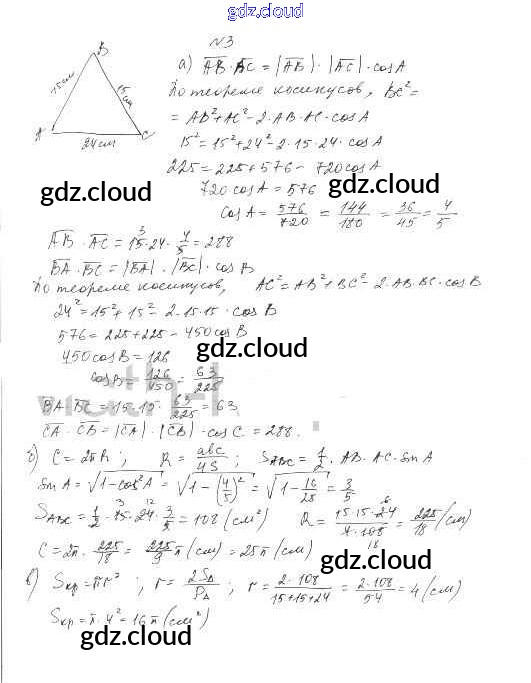 gdz.cloud
№3
B
15см
15см
A
C
24см
а) AB · BC = |AB| · |AC| · cosA
По теореме косинусов, BC² =
= AB² + AC² - 2 · AB · AC · cosA
15² = 15² + 24² - 2 · 15 · 24 · cosA
225 = 225 + 576 - 720cosA
720cosA = 576
gdz.cloud
gdz.cloud
cosA = 576/720 = 144/180 = 36/45 = 4/5
AB · AC = 15 · 24 · 4/5 = 288
BA · BC = |BA| · |BC| · cosB
По теореме косинусов, AC² = AB² + BC² - 2 · AB · BC · cosB
24² = 15² + 15² - 2 · 15 · 15 · cosB
576 = 225 + 225 - 450cosB
450cosB = 126
gdz.cloud
cosB = 126/450 = 63/225
BA · BC = 15 · 15 · 63/225 = 63
CA · CB = |CA| · |CB| · cosC = 288.
б) C = 2πR; R = abc/4S; S ABC = 1/2 · AB · AC · sinA
sinA = √1 - cos²A = √1 - (4/5)² = √1 - 16/25 = 3/5
S ABC = 1/2 · 15 · 24 · 3/5 = 108 (см²) R = 15 · 15 · 24/4 · 108 = 225/18 (см)
C = 2π · 225/18 = 225/9 π (см) = 25π (см)
gdz.cloud
gdz.cloud
в) Sкр = πr²; r = 2S△/P△; r = 2 · 108/15 + 15 + 24 = 2 · 108/54 = 4 (см)
Sкр = π · 4² = 16π (см²)
gdz.cloud
gdz.cloud
gdz.cloud